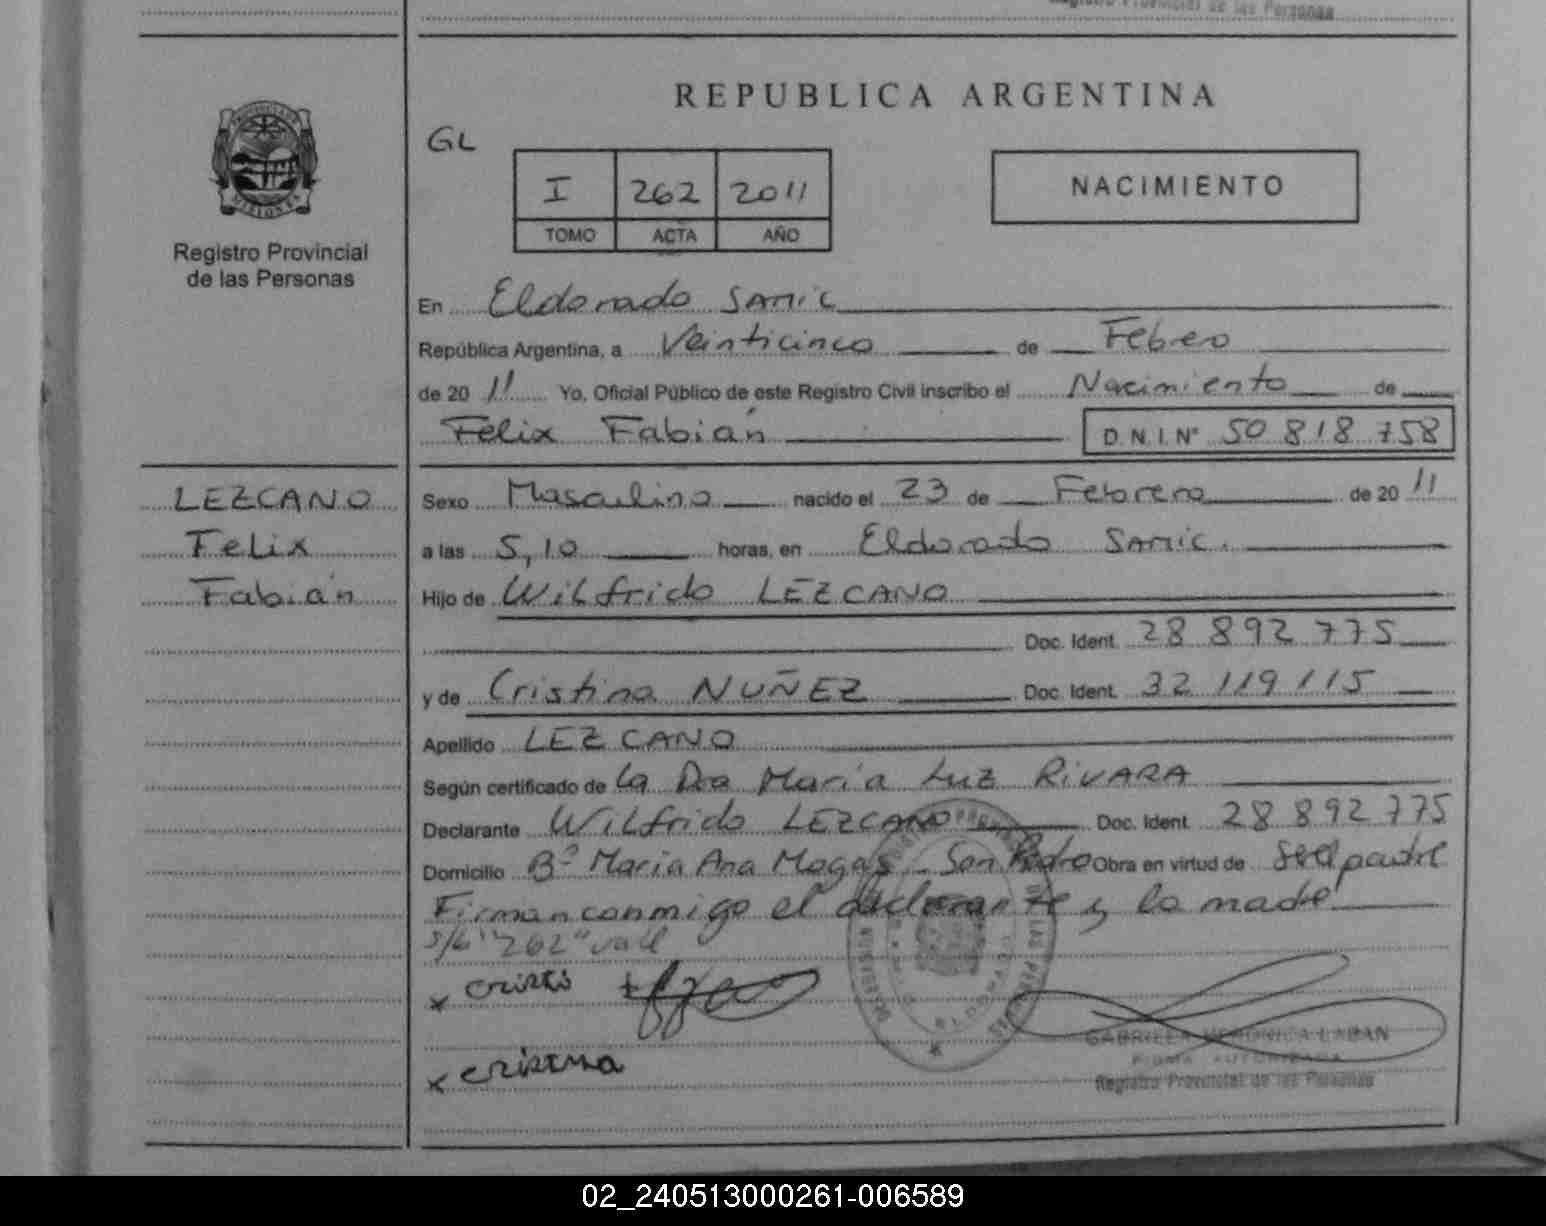 Registro Provincial de las Personas
REPUBLICA ARGENTINA
GL
I 262 2011
TOMO ACTA AÑO
NACIMIENTO
MISIONES
Registro Provincial
de las Personas
En Eldorado SAMIC
República Argentina, a Veinticinco de Febrero
de 20 11 Yo, Oficial Público de este Registro Civil inscribo el Nacimiento de
Felix Fabián D.N.I.Nº 50 818 758
LEZCANO
Felix
Fabián
Sexo Masculino nacido el 23 de Febrero de 20 11
a las 5,10 horas, en Eldorado SAMIC.
Hijo de Wilfrido LEZCANO
Doc. Ident. 28 892 775
y de Cristina NUÑEZ Doc. Ident. 32 119 115
Apellido LEZCANO
Según certificado de la Dra María Luz RIVARA
Declarante Wilfrido LEZCANO Doc. Ident. 28 892 775
Domicilio Bº Maria Ana Mogas - San Pedro Obra en virtud de ser el padre
Firman conmigo el declarante y la madre
S/b "262" vale
x cristi
GABRIELA VERONICA LABAN
FIRMA AUTORIZADA
x cristina
Registro Provincial de las Personas
02_240513000261-006589